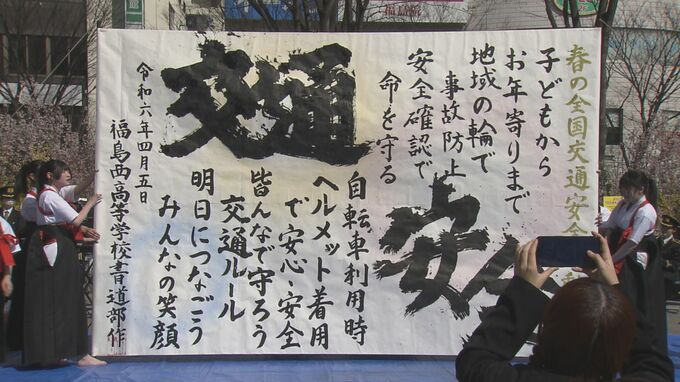 春の全国交通安全
子どもから
お年寄りまで
地域の輪で
事故防止
安全確認で
命を守る
交通
安全
自転車利用時
ヘルメット着用
で安心・安全
皆んなで守ろう
交通ルール
明日につなごう
みんなの笑顔
令和六年四月五日
福島西高等学校書道部作